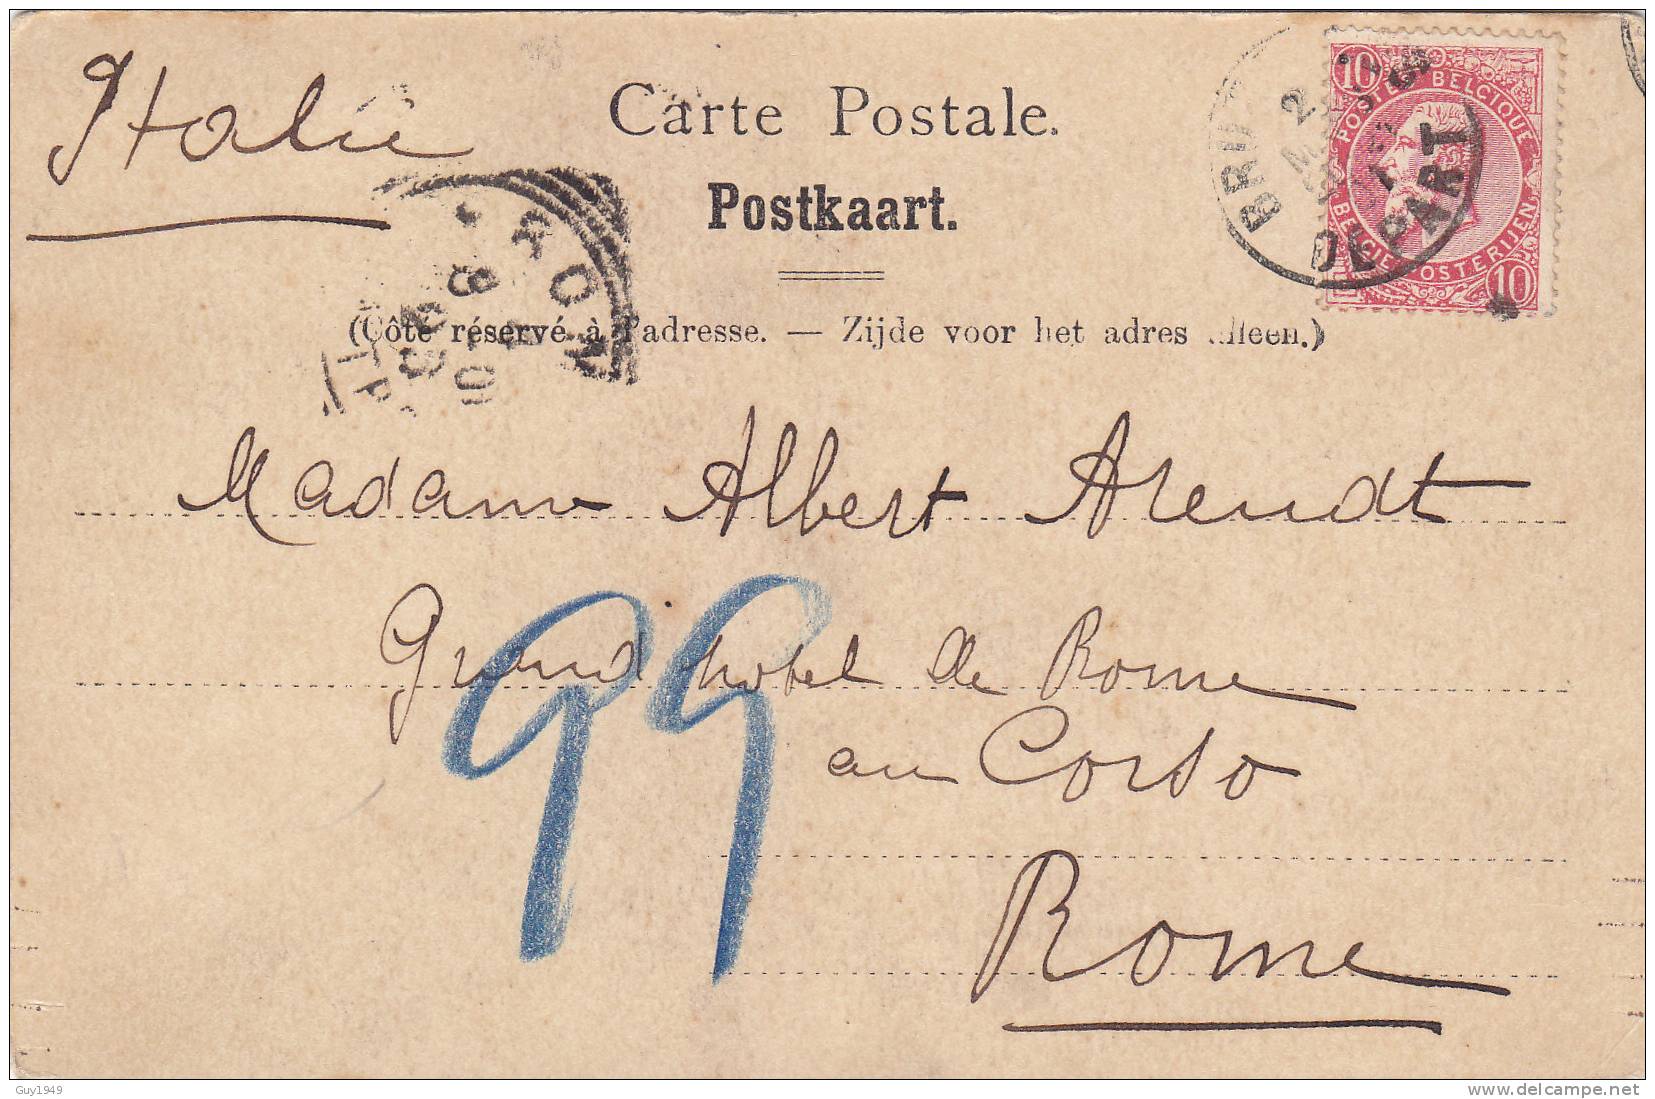 Italie
Carte Postale.
Postkaart.
(Côté réservé à l'adresse. — Zijde voor het adres alleen.)
10 10
POSTES BELGIQUE
BELGIE POSTERIJEN
10
DEPART
Madame Albert Arendt
Grand hotel de Rome
au Corso
Rome
99
Guy1949
www.delcampe.net